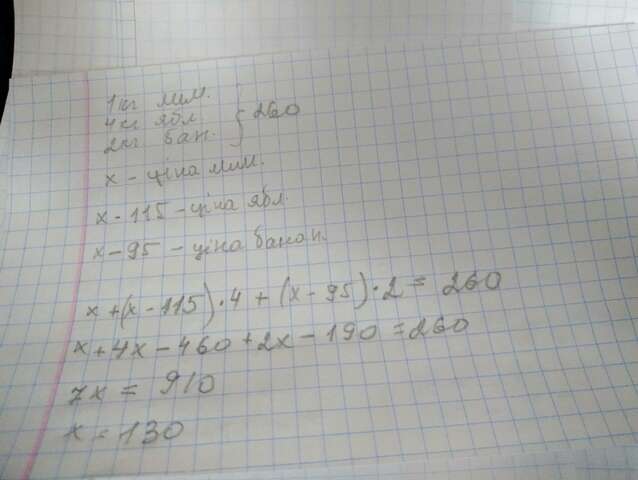 1кг лим.
4кг ябл.
2кг бан. } 260
x - ціна лим.
x - 115 - ціна ябл.
x - 95 - ціна банан.
x + (x - 115) · 4 + (x - 95) · 2 = 260
x + 4x - 460 + 2x - 190 = 260
7x = 910
x = 130